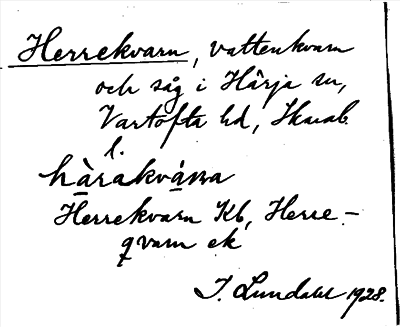 Herrekvarn, vattenkvarn
och såg i Hårja sn,
Vartofta hd, Skarab.
l.
hàrakvánna
Herrekvarn Kb, Herre-
qvarn ek
I. Lundahl 1928.